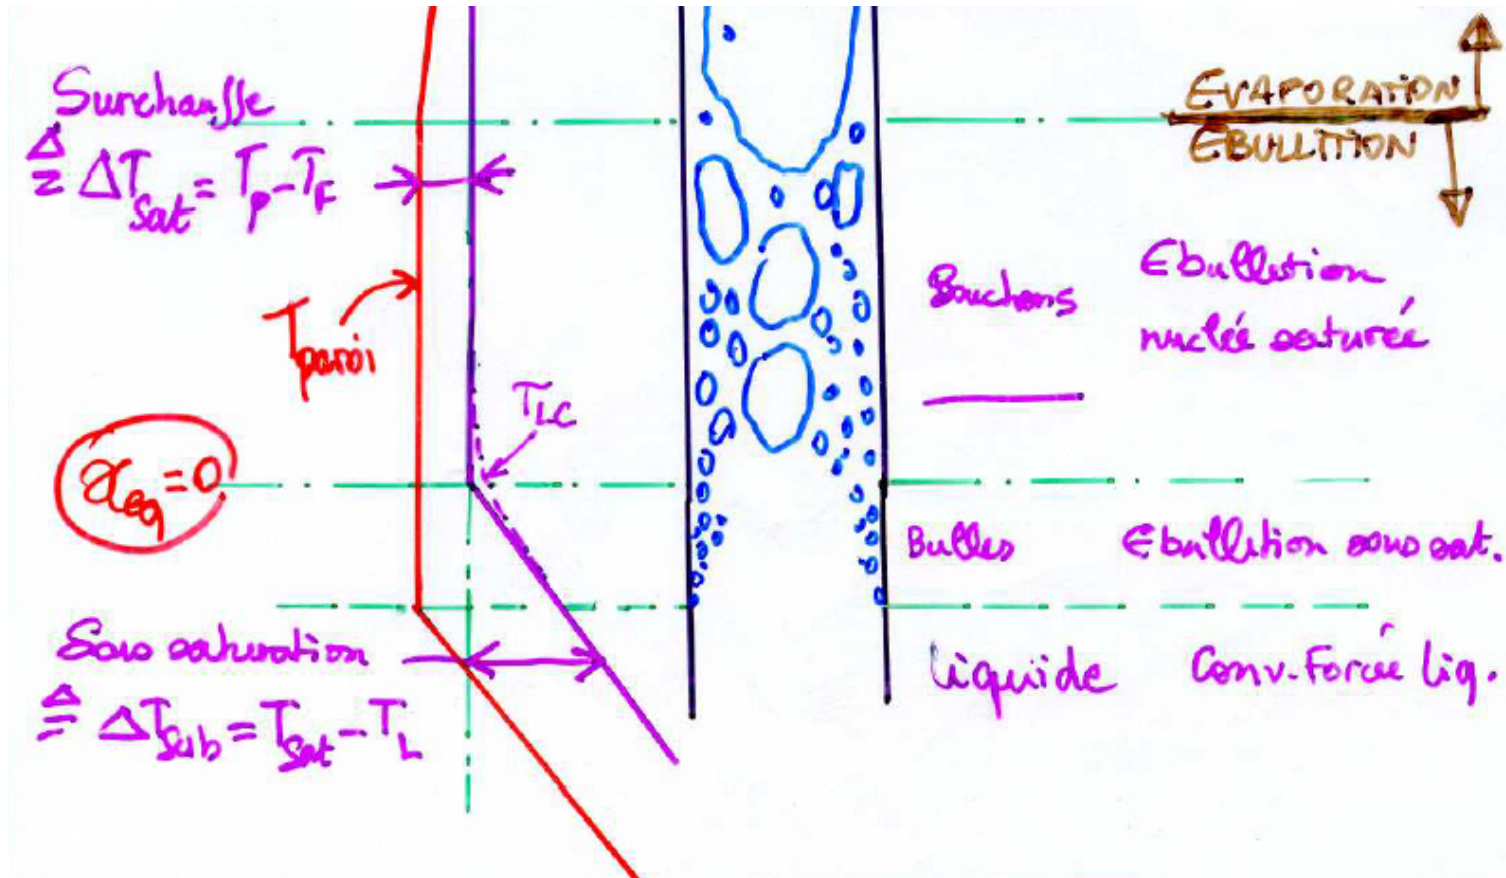 Surchauffe
≜ ΔT_sat = T_P - T_F
T_paroi
T_LC
x_eq = 0
Sous saturation
≜ ΔT_sub = T_sat - T_L
EVAPORATION
EBULLITION
Bouchons
Ebullition
nuclée saturée
Bulles
Ebullition sous sat.
Liquide
Conv. Forcée liq.